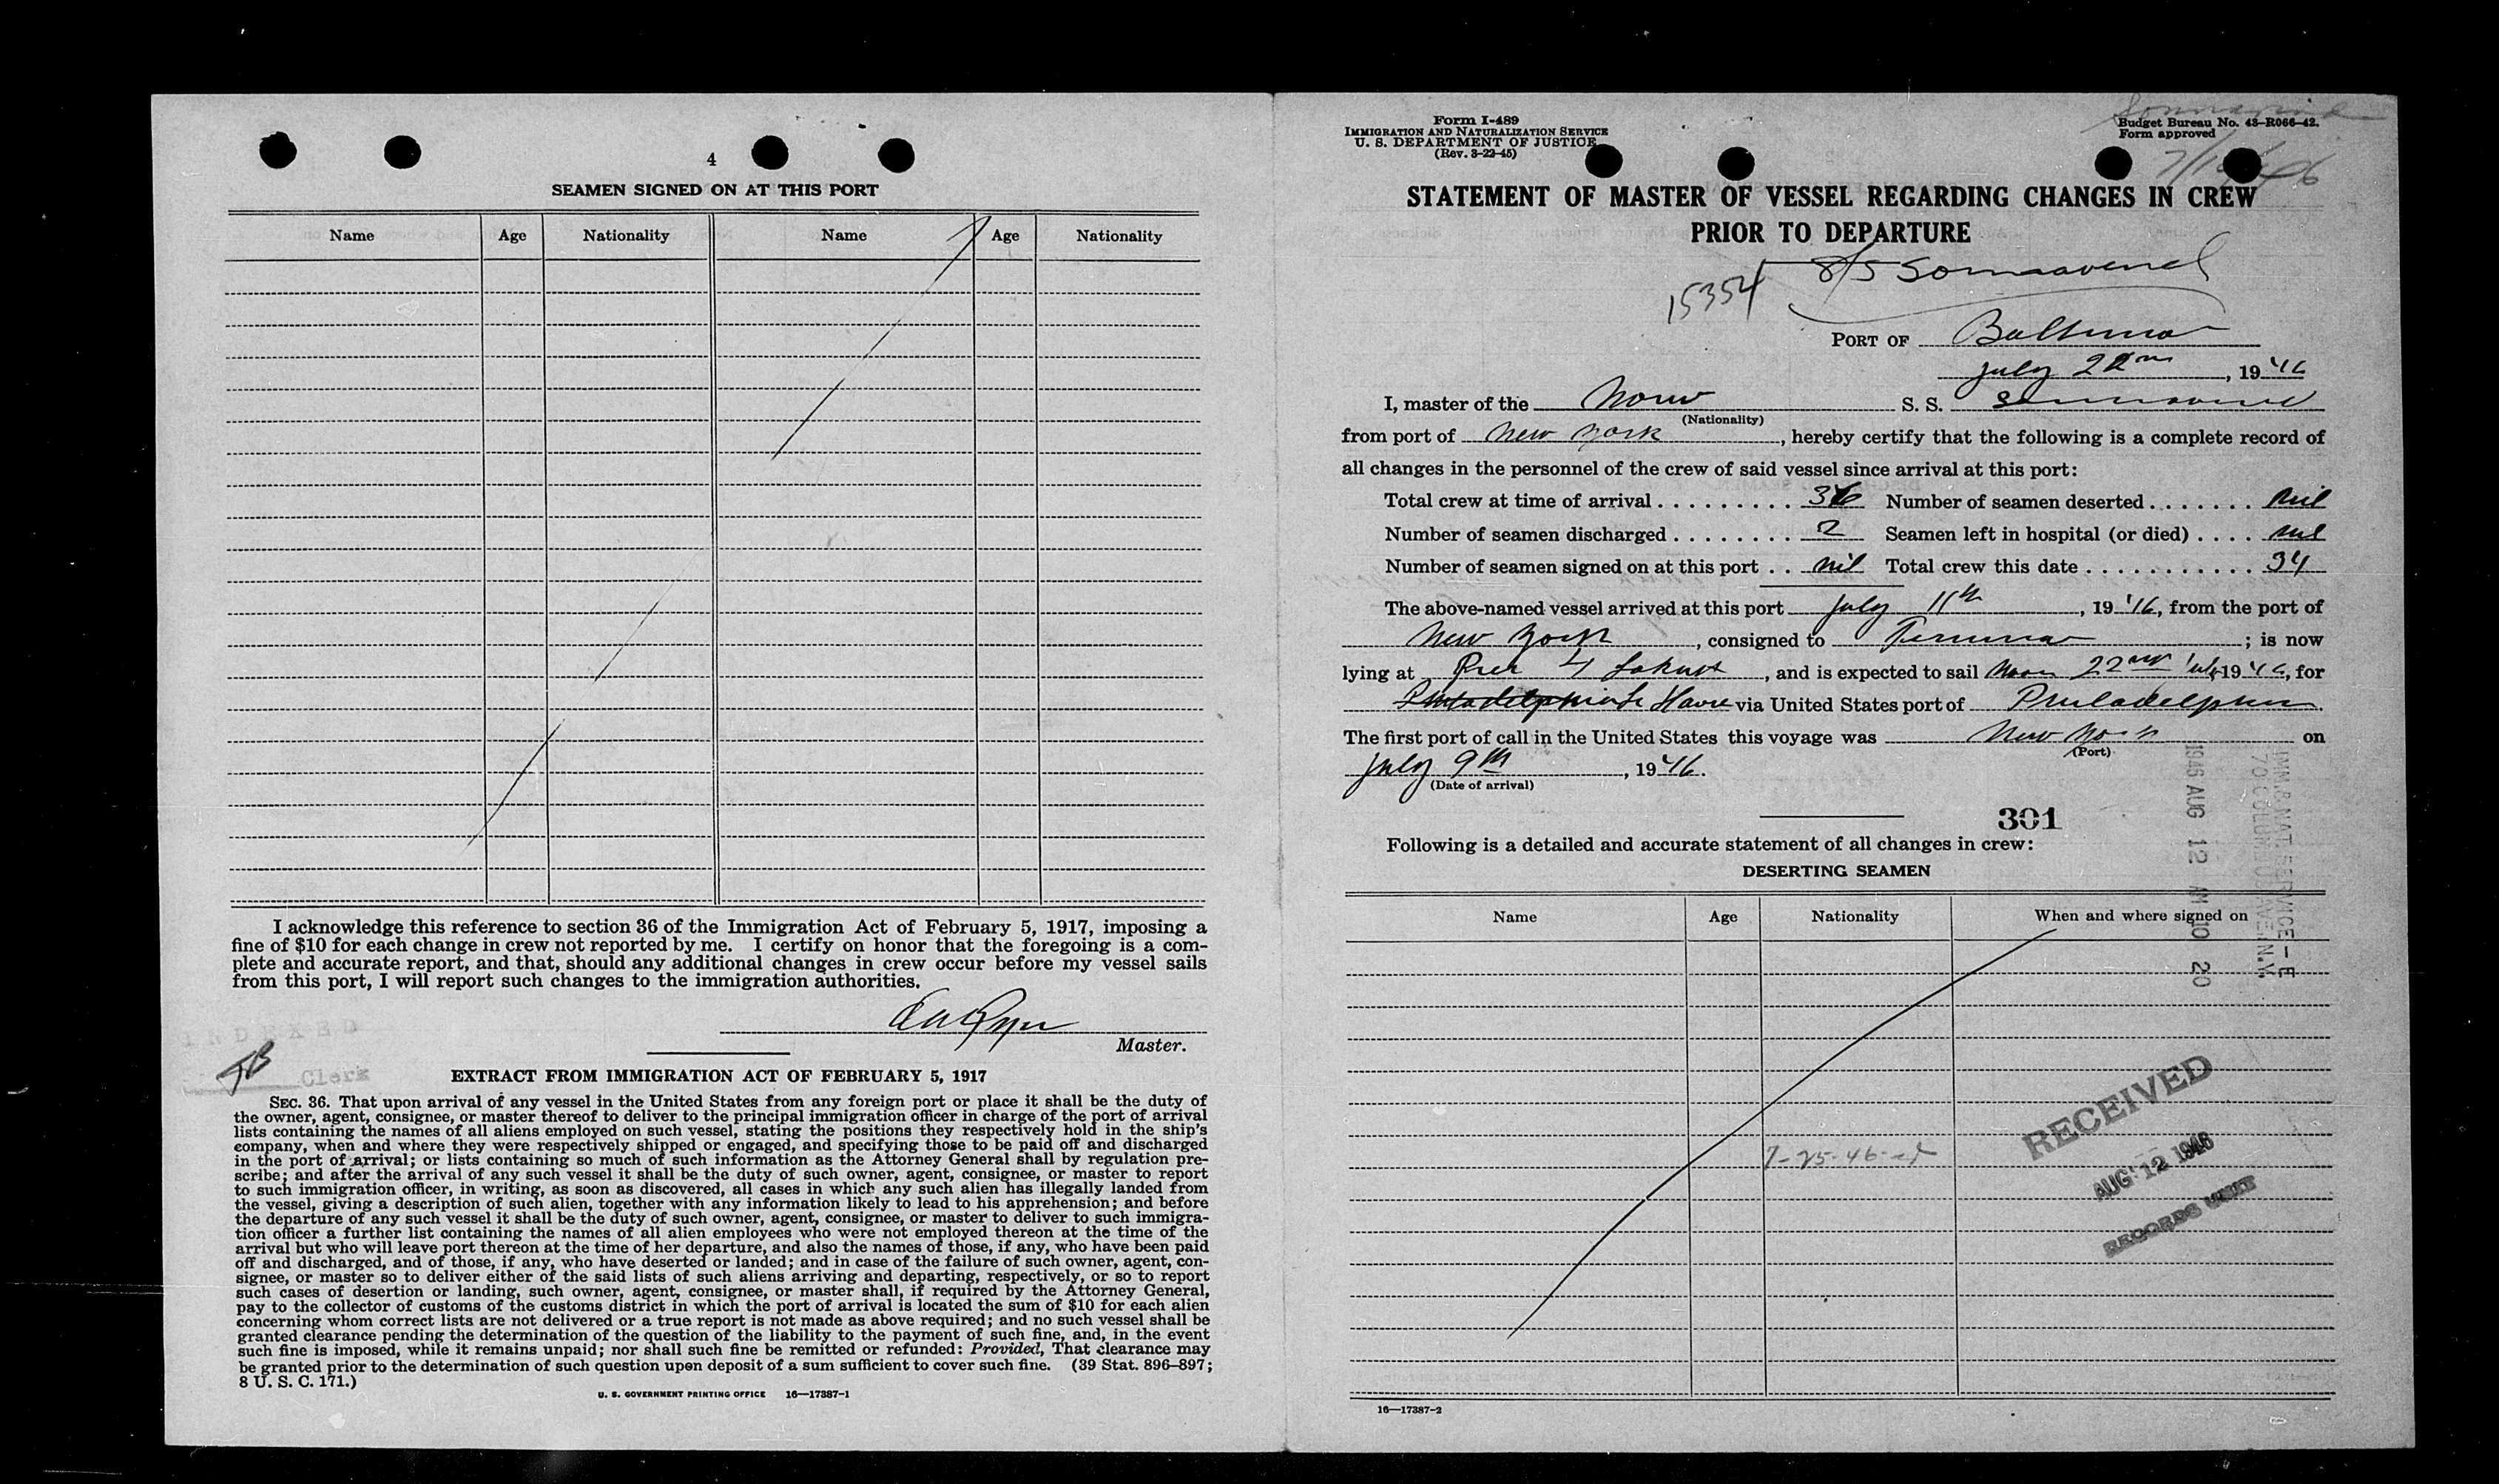 4
SEAMEN SIGNED ON AT THIS PORT
Name Age Nationality Name Age Nationality
I acknowledge this reference to section 36 of the Immigration Act of February 5, 1917, imposing a
fine of $10 for each change in crew not reported by me. I certify on honor that the foregoing is a com-
plete and accurate report, and that, should any additional changes in crew occur before my vessel sails
from this port, I will report such changes to the immigration authorities.
Master.
INDEXED
Clerk
EXTRACT FROM IMMIGRATION ACT OF FEBRUARY 5, 1917
SEC. 36. That upon arrival of any vessel in the United States from any foreign port or place it shall be the duty of
the owner, agent, consignee, or master thereof to deliver to the principal immigration officer in charge of the port of arrival
lists containing the names of all aliens employed on such vessel, stating the positions they respectively hold in the ship's
company, when and where they were respectively shipped or engaged, and specifying those to be paid off and discharged
in the port of arrival; or lists containing so much of such information as the Attorney General shall by regulation pre-
scribe; and after the arrival of any such vessel it shall be the duty of such owner, agent, consignee, or master to report
to such immigration officer, in writing, as soon as discovered, all cases in which any such alien has illegally landed from
the vessel, giving a description of such alien, together with any information likely to lead to his apprehension; and before
the departure of any such vessel it shall be the duty of such owner, agent, consignee, or master to deliver to such immigra-
tion officer a further list containing the names of all alien employees who were not employed thereon at the time of the
arrival but who will leave port thereon at the time of her departure, and also the names of those, if any, who have been paid
off and discharged, and of those, if any, who have deserted or landed; and in case of the failure of such owner, agent, con-
signee, or master so to deliver either of the said lists of such aliens arriving and departing, respectively, or so to report
such cases of desertion or landing, such owner, agent, consignee, or master shall, if required by the Attorney General,
pay to the collector of customs of the customs district in which the port of arrival is located the sum of $10 for each alien
concerning whom correct lists are not delivered or a true report is not made as above required; and no such vessel shall be
granted clearance pending the determination of the question of the liability to the payment of such fine, and, in the event
such fine is imposed, while it remains unpaid; nor shall such fine be remitted or refunded: Provided, That clearance may
be granted prior to the determination of such question upon deposit of a sum sufficient to cover such fine. (39 Stat. 896–897;
8 U. S. C. 171.)
U. S. GOVERNMENT PRINTING OFFICE 16—17387-1
Form I-489
IMMIGRATION AND NATURALIZATION SERVICE
U. S. DEPARTMENT OF JUSTICE
(Rev. 3-22-45)
Budget Bureau No. 43-R066-42.
Form approved
STATEMENT OF MASTER OF VESSEL REGARDING CHANGES IN CREW
PRIOR TO DEPARTURE
15354 S/S Sommavend
PORT OF Baltimore
July 22nd, 19 46
I, master of the Norw S. S.
(Nationality)
from port of New York, hereby certify that the following is a complete record of
all changes in the personnel of the crew of said vessel since arrival at this port:
Total crew at time of arrival 36 Number of seamen deserted nil
Number of seamen discharged 2 Seamen left in hospital (or died) nil
Number of seamen signed on at this port nil Total crew this date 34
The above-named vessel arrived at this port July 11th, 19 46, from the port of
New York, consigned to ; is now
lying at Pier 4 , and is expected to sail Noon 22nd July 19 46, for
Philadelphia Le Havre via United States port of Philadelphia.
The first port of call in the United States this voyage was New York on
(Port)
July 9th, 19 46.
(Date of arrival)
301
Following is a detailed and accurate statement of all changes in crew:
DESERTING SEAMEN
Name Age Nationality When and where signed on
IMM. & NAT. SERVICE - E
70 COLUMBUS AVE. N.Y.
1946 AUG 12 AM 10 20
7-25-46
RECEIVED
AUG 12 1946
RECORDS UNIT
16—17387-2